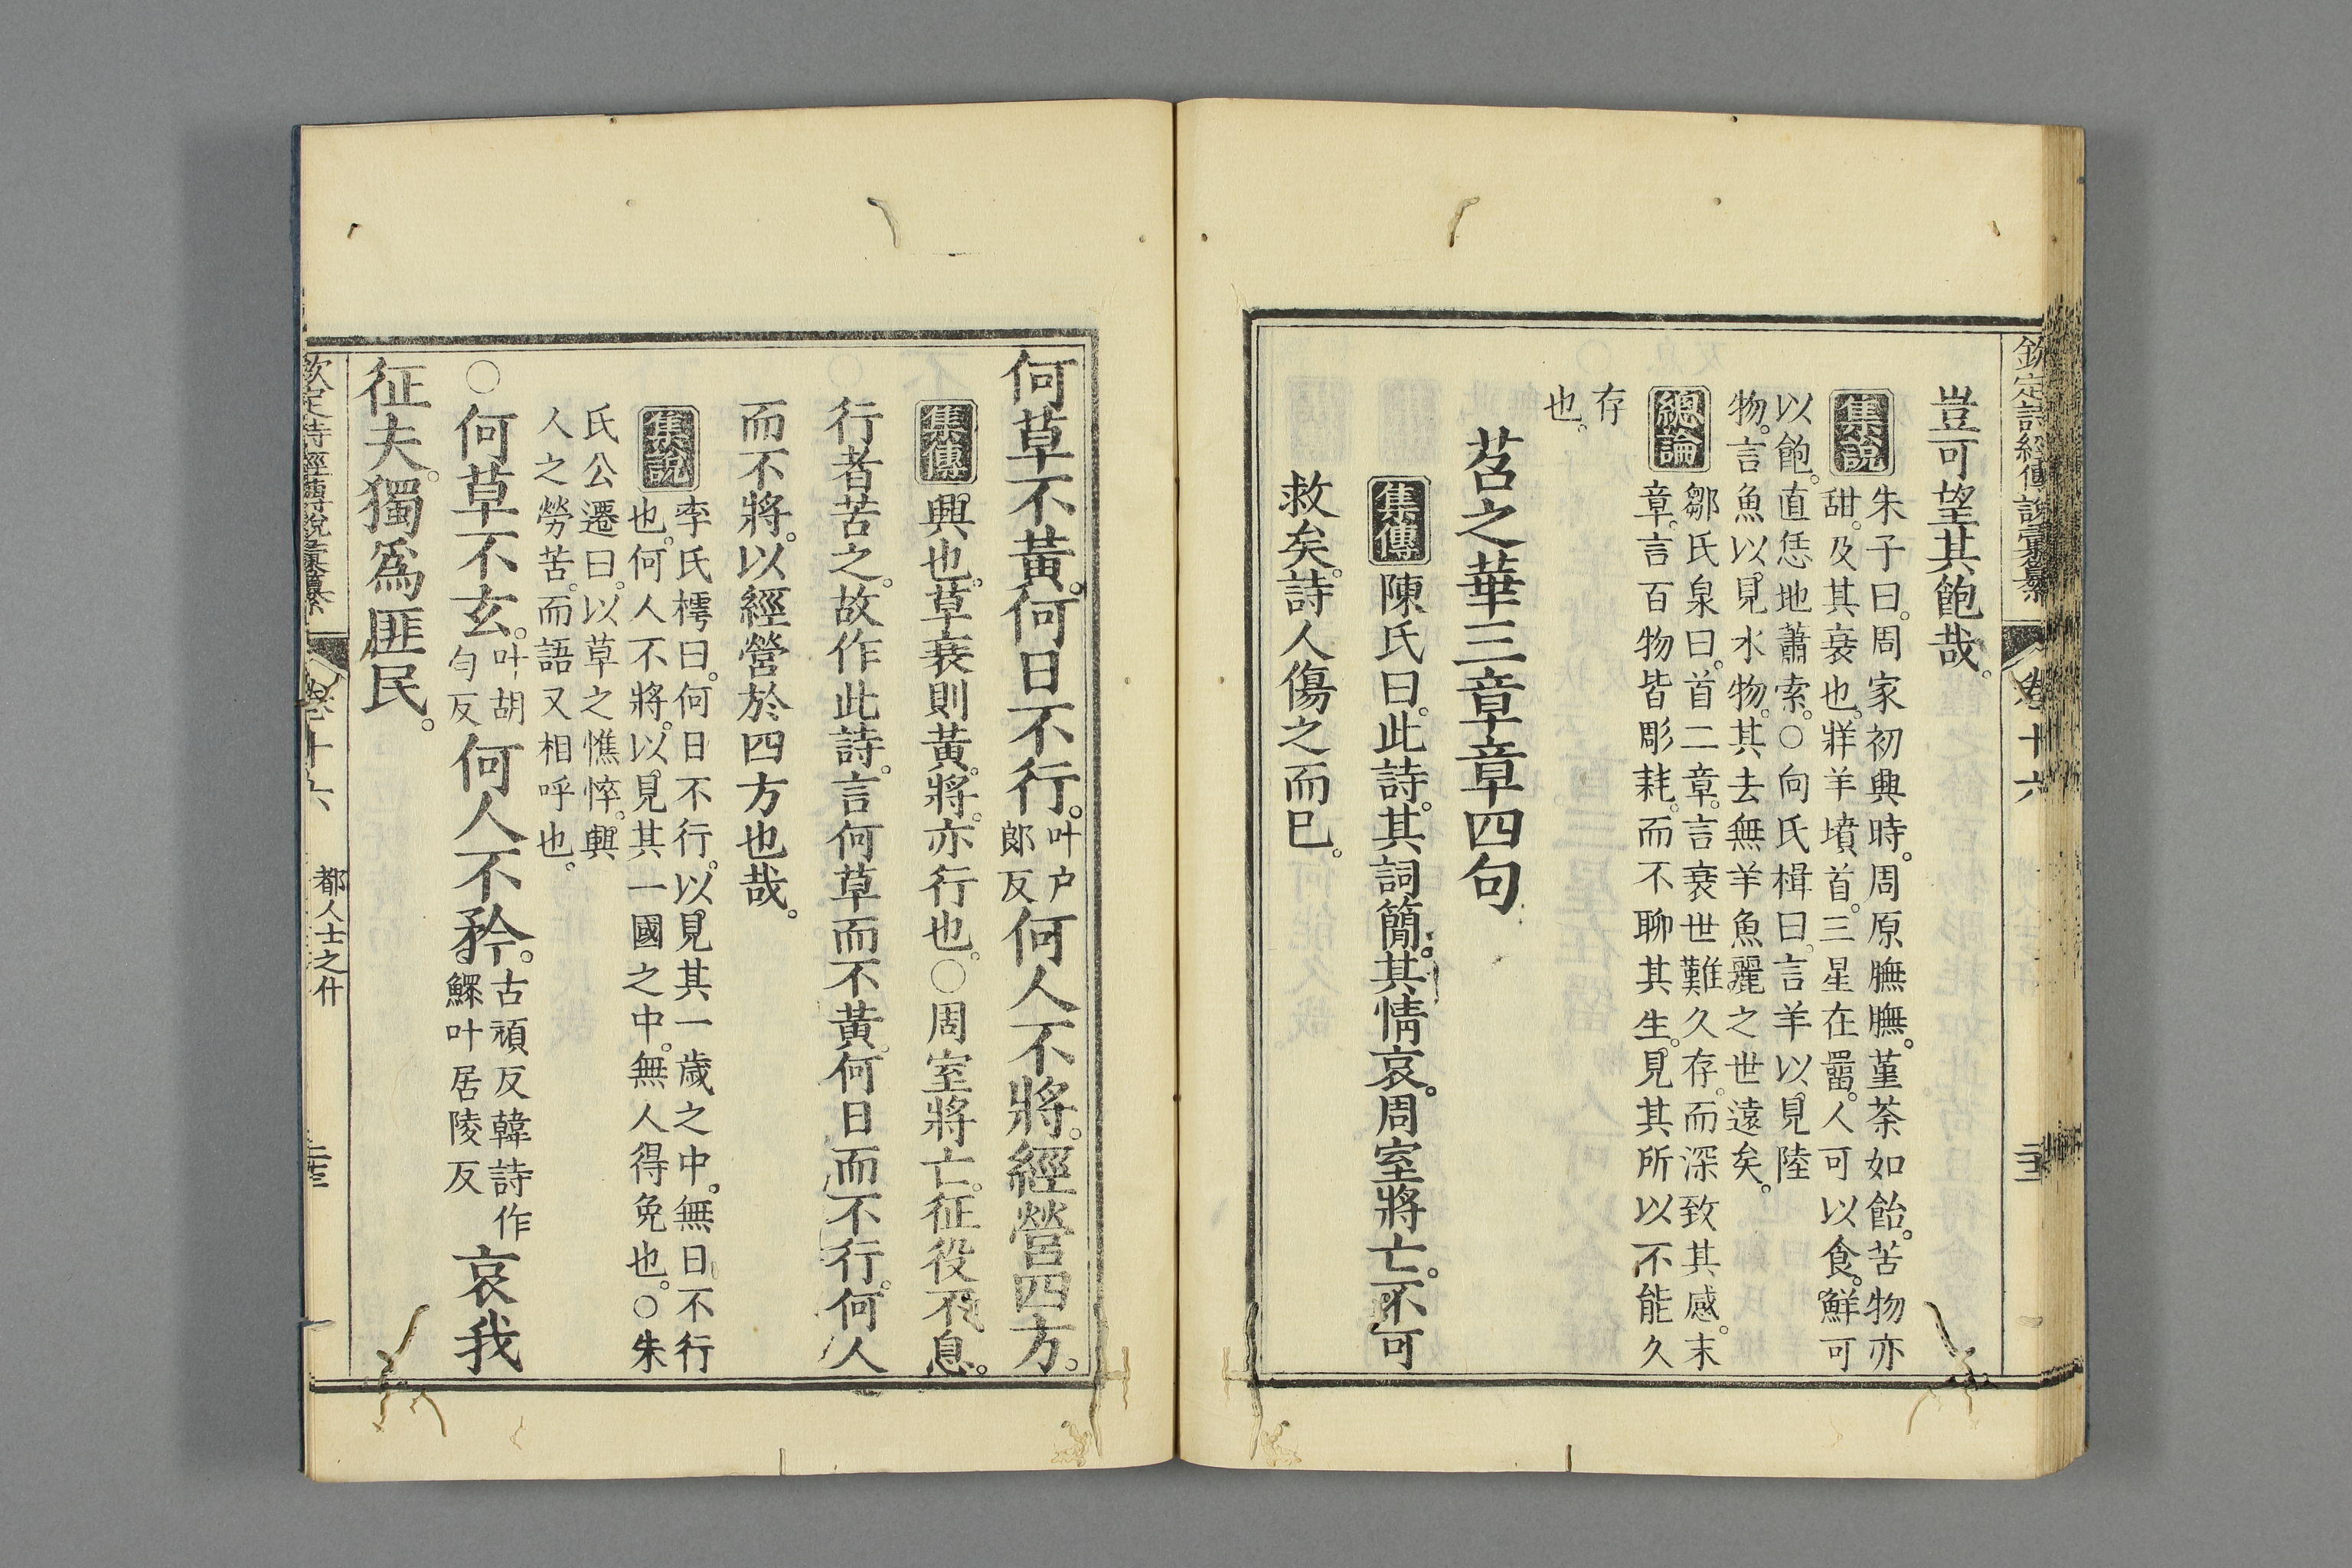 欽定詩經傳說彙纂 卷十六
豈可望其飽哉。
集說
朱子曰。周家初興時。周原膴膴。堇荼如飴。苦物亦
甜。及其衰也。牂羊墳首。三星在罶。人可以食。鮮可
以飽。直恁地蕭索。○向氏楫曰。言羊以見陸
物。言魚以見水物。其去無羊魚麗之世遠矣。
總論
鄒氏泉曰。首二章。言衰世難久存。而深致其感。末
章。言百物皆彫耗。而不聊其生。見其所以不能久
存
也。
苕之華三章章四句
集傳 陳氏曰。此詩。其詞簡。其情哀。周室將亡。不可
救矣。詩人傷之而已。
何草不黃。何日不行。叶戶郎反何人不將。經營四方。
集傳 興也。草衰則黃。將。亦行也。○周室將亡。征役不息。
行者苦之。故作此詩。言何草而不黃。何日而不行。何人
而不將。以經營於四方也哉。
集說
李氏樗曰。何日不行。以見其一歲之中。無日不行
也。何人不將。以見其一國之中。無人得免也。○朱
氏公遷曰。以草之憔悴。興
人之勞苦。而語又相呼也。
○何草不玄。叶胡勻反何人不矜。古頑反韓詩作鰥叶居陵反哀我
征夫。獨爲匪民。
欽定詩經傳說彙纂 卷十六 都人士之什